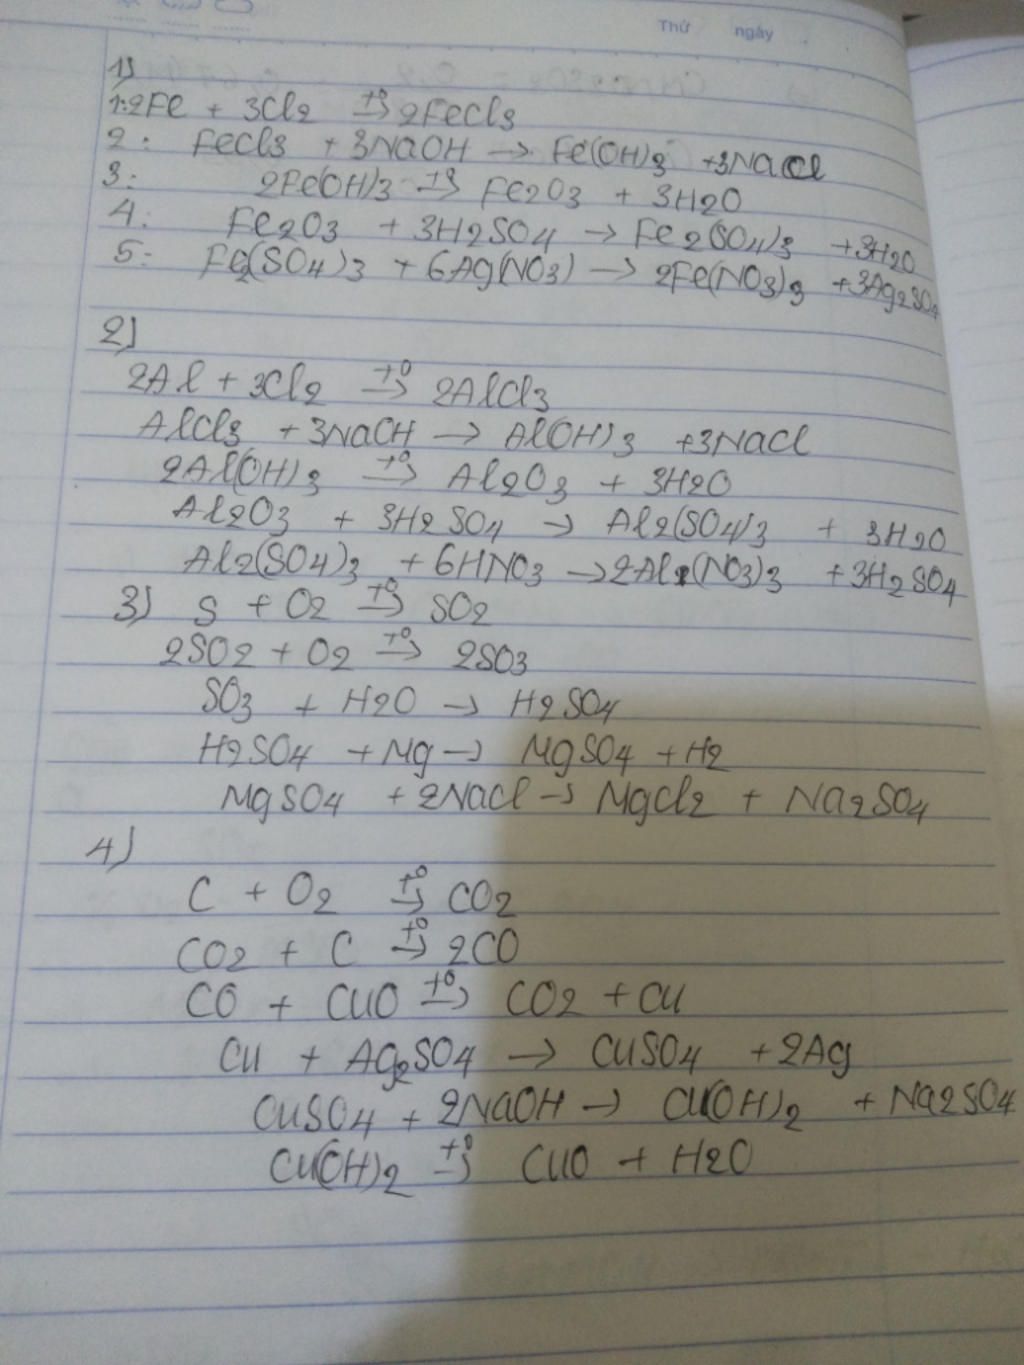 Thứ ngày
1)
1: 2Fe + 3Cl2 t°→ 2FeCl3
2: FeCl3 + 3NaOH → Fe(OH)3 + 3NaCl
3: 2Fe(OH)3 t°→ Fe2O3 + 3H2O
4: Fe2O3 + 3H2SO4 → Fe2(SO4)3 + 3H2O
5: Fe2(SO4)3 + 6Ag(NO3) → 2Fe(NO3)3 + 3Ag2SO4
2)
2Al + 3Cl2 t°→ 2AlCl3
AlCl3 + 3NaOH → Al(OH)3 + 3NaCl
2Al(OH)3 t°→ Al2O3 + 3H2O
Al2O3 + 3H2SO4 → Al2(SO4)3 + 3H2O
Al2(SO4)3 + 6HNO3 → 2Al(NO3)3 + 3H2SO4
3) S + O2 t°→ SO2
2SO2 + O2 t°→ 2SO3
SO3 + H2O → H2SO4
H2SO4 + Mg → MgSO4 + H2
MgSO4 + 2NaCl → MgCl2 + Na2SO4
4)
C + O2 t°→ CO2
CO2 + C t°→ 2CO
CO + CuO t°→ CO2 + Cu
Cu + Ag2SO4 → CuSO4 + 2Ag
CuSO4 + 2NaOH → Cu(OH)2 + Na2SO4
Cu(OH)2 t°→ CuO + H2O